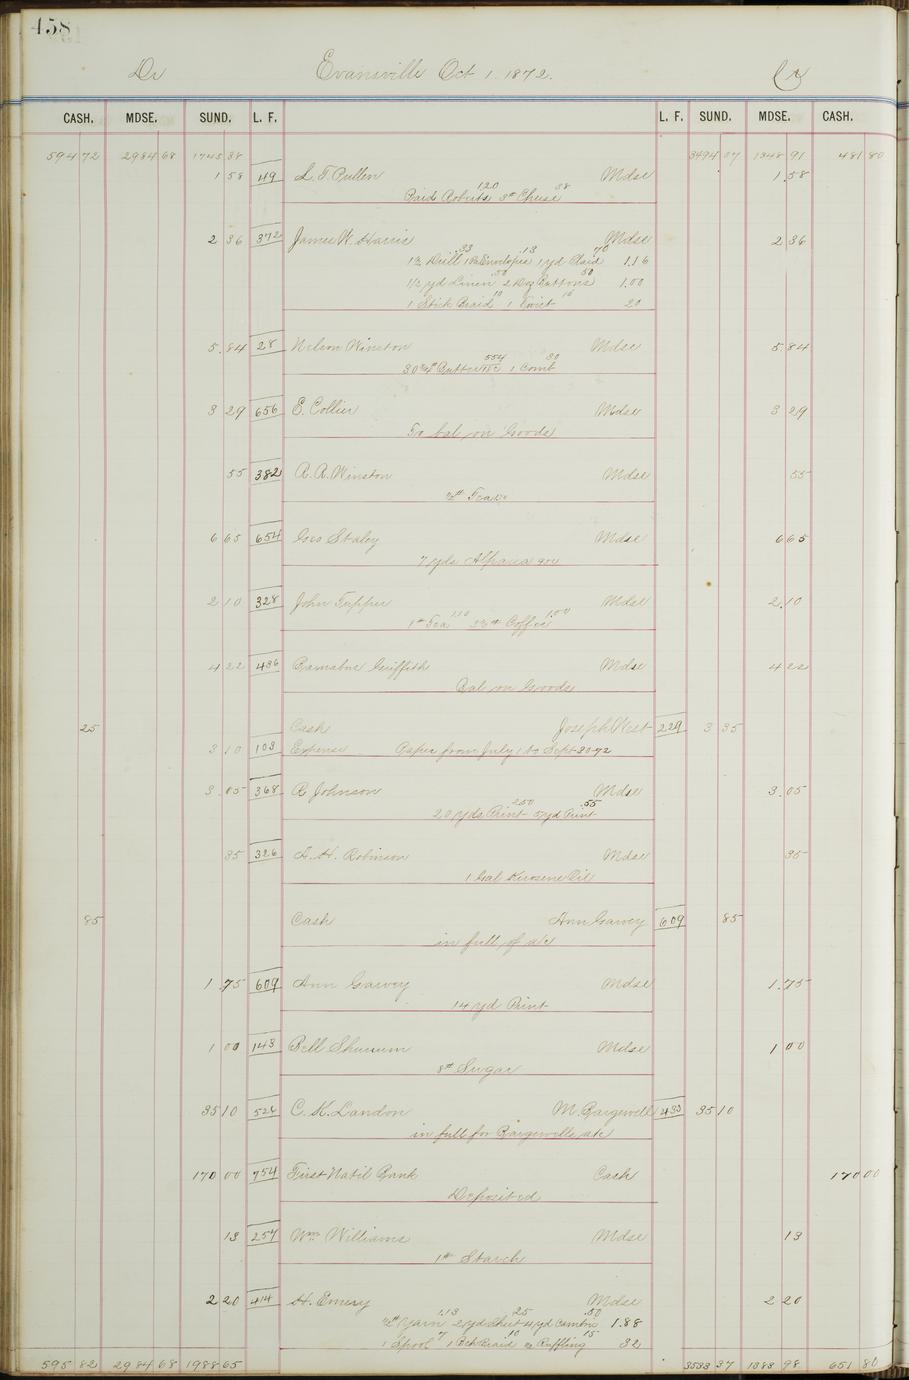 458
Dr Evansville Oct 1. 1872. Cr
CASH. MDSE. SUND. L. F. L. F. SUND. MDSE. CASH.
594 72 2984 68 1745 38 3494 07 1348 91 481 80
1 58 49 L. T. Pullen Mdse 1 58
120 38
Paid Roberts 3# Cheese
2 36 372 James W. Harris Mdse 2 36
.33 .13 70
Drill 1 Pk Envelopes 1 yd Plaid 1.16
.50 50
1/2 yd Linen 2 Doz Buttons 1.00
10 10
1 Stick Braid 1 Twist 20
5.84 28 Nelson Winston Mdse 5.84
554 30
Butter 18c 1 Comb
3 29 656 E. Collier Mdse 3 29
To bal on Goods
55 382 R. R. Winston Mdse 55
Tea
6 65 654 Geo Staley Mdse 6 65
7 yds Alpaca
2 10 328 John Tupper Mdse 2.10
1.10 1.00
1# Tea Coffee
4 22 436 Barnabus Griffith Mdse 4 22
Bal on Goods
25 Cash Joseph West 229 3 35
3 10 103 Expense Paper from July 1 to Sept 30-72
3.05 368 R Johnson Mdse 3.05
250 .55
20 yds Print 5 yd Print
35 326 A. H. Robinson Mdse 35
1 Gal Kerosene Oil
85 Cash Ann Garvey 609 85
in full of a/c
1.75 609 Ann Garvey Mdse 1.75
14 yd Print
1 00 143 Bell Mdse 1 00
8# Sugar
35 10 526 C. K. Landon M. Bargewell 433 35 10
in full for Bargewells a/c
170 00 754 First Natil Bank Cash 170 00
Deposited
13 257 Wm Williams Mdse 13
1# Starch
2 20 414 H. Emery Mdse 2 20
1.13 25 .50
Yarn 2 yd Sheet 4 yd Cambric 1.88
7 10 15
1 Spool 1 Bch Braid Ruffling 32
595 82 2984 68 1988 65 3533 37 1383 98 651 80